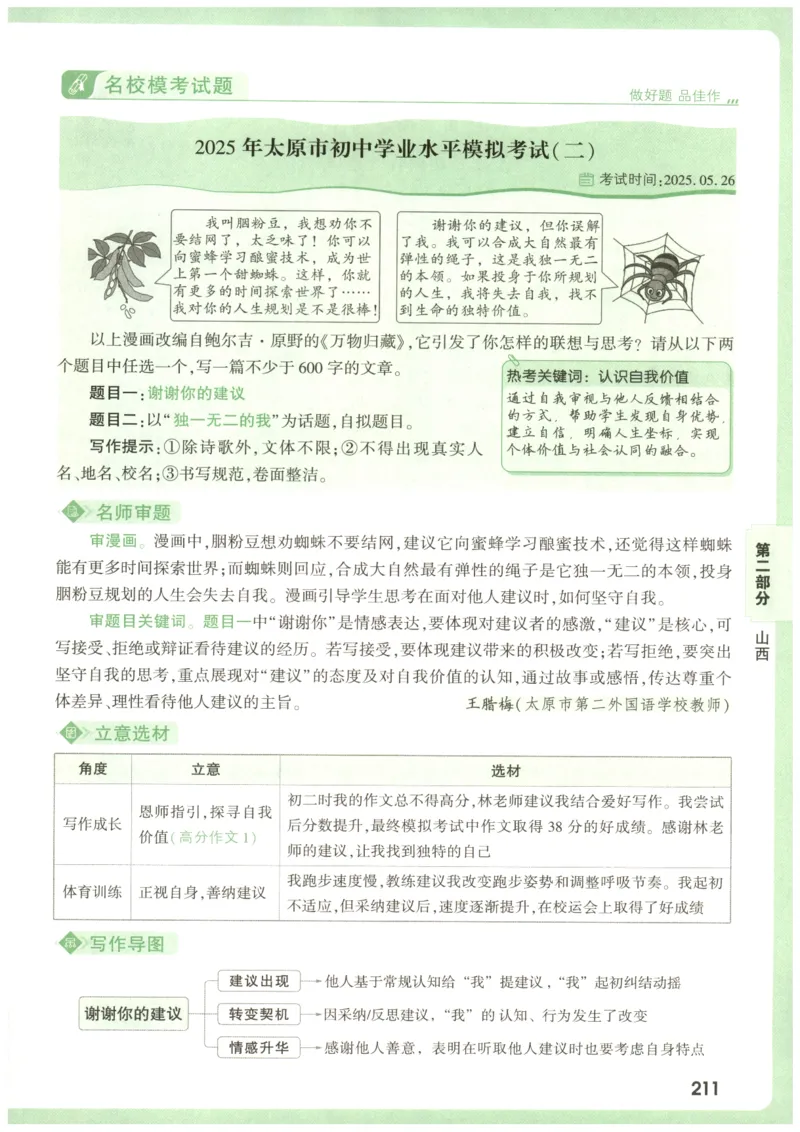 名校模考试题
做好题 品佳作
2025年太原市初中学业水平模拟考试(二)
考试时间:2025.05.26
我叫胭粉豆，我想劝你不
要结网了，太乏味了！你可以
向蜜蜂学习酿蜜技术，成为世
上第一个甜蜘蛛。这样，你就
有更多的时间探索世界了……
我对你的人生规划是不是很棒！
谢谢你的建议，但你误解
了我。我可以合成大自然最有
弹性的绳子，这是我独一无二
的本领。如果投身于你所规划
的人生，我将失去自我，找不
到生命的独特价值。
以上漫画改编自鲍尔吉·原野的《万物归藏》,它引发了你怎样的联想与思考？请从以下两
个题目中任选一个,写一篇不少于600字的文章。
题目一:谢谢你的建议
题目二:以“独一无二的我”为话题,自拟题目。
写作提示:①除诗歌外,文体不限;②不得出现真实人
名、地名、校名;③书写规范,卷面整洁。
热考关键词：认识自我价值
通过自我审视与他人反馈相结合
的方式，帮助学生发现自身优势，
建立自信，明确人生坐标，实现
个体价值与社会认同的融合。
名师审题
审漫画。漫画中,胭粉豆想劝蜘蛛不要结网,建议它向蜜蜂学习酿蜜技术,还觉得这样蜘蛛
能有更多时间探索世界;而蜘蛛则回应,合成大自然最有弹性的绳子是它独一无二的本领,投身
胭粉豆规划的人生会失去自我。漫画引导学生思考在面对他人建议时,如何坚守自我。
审题目关键词。题目一中“谢谢你”是情感表达,要体现对建议者的感激,“建议”是核心,可
写接受、拒绝或辩证看待建议的经历。若写接受,要体现建议带来的积极改变;若写拒绝,要突出
坚守自我的思考,重点展现对“建议”的态度及对自我价值的认知,通过故事或感悟,传达尊重个
体差异、理性看待他人建议的主旨。
王腊梅(太原市第二外国语学校教师)
立意选材
角度 立意 选材
写作成长
恩师指引,探寻自我
价值(高分作文1)
初二时我的作文总不得高分,林老师建议我结合爱好写作。我尝试
后分数提升,最终模拟考试中作文取得38分的好成绩。感谢林老
师的建议,让我找到独特的自己
体育训练
正视自身,善纳建议
我跑步速度慢,教练建议我改变跑步姿势和调整呼吸节奏。我起初
不适应,但采纳建议后,速度逐渐提升,在校运会上取得了好成绩
写作导图
谢谢你的建议
建议出现
他人基于常规认知给“我”提建议，“我”起初纠结动摇
转变契机
因采纳/反思建议，“我”的认知、行为发生了改变
情感升华
感谢他人善意，表明在听取他人建议时也要考虑自身特点
第二部分
山西
211